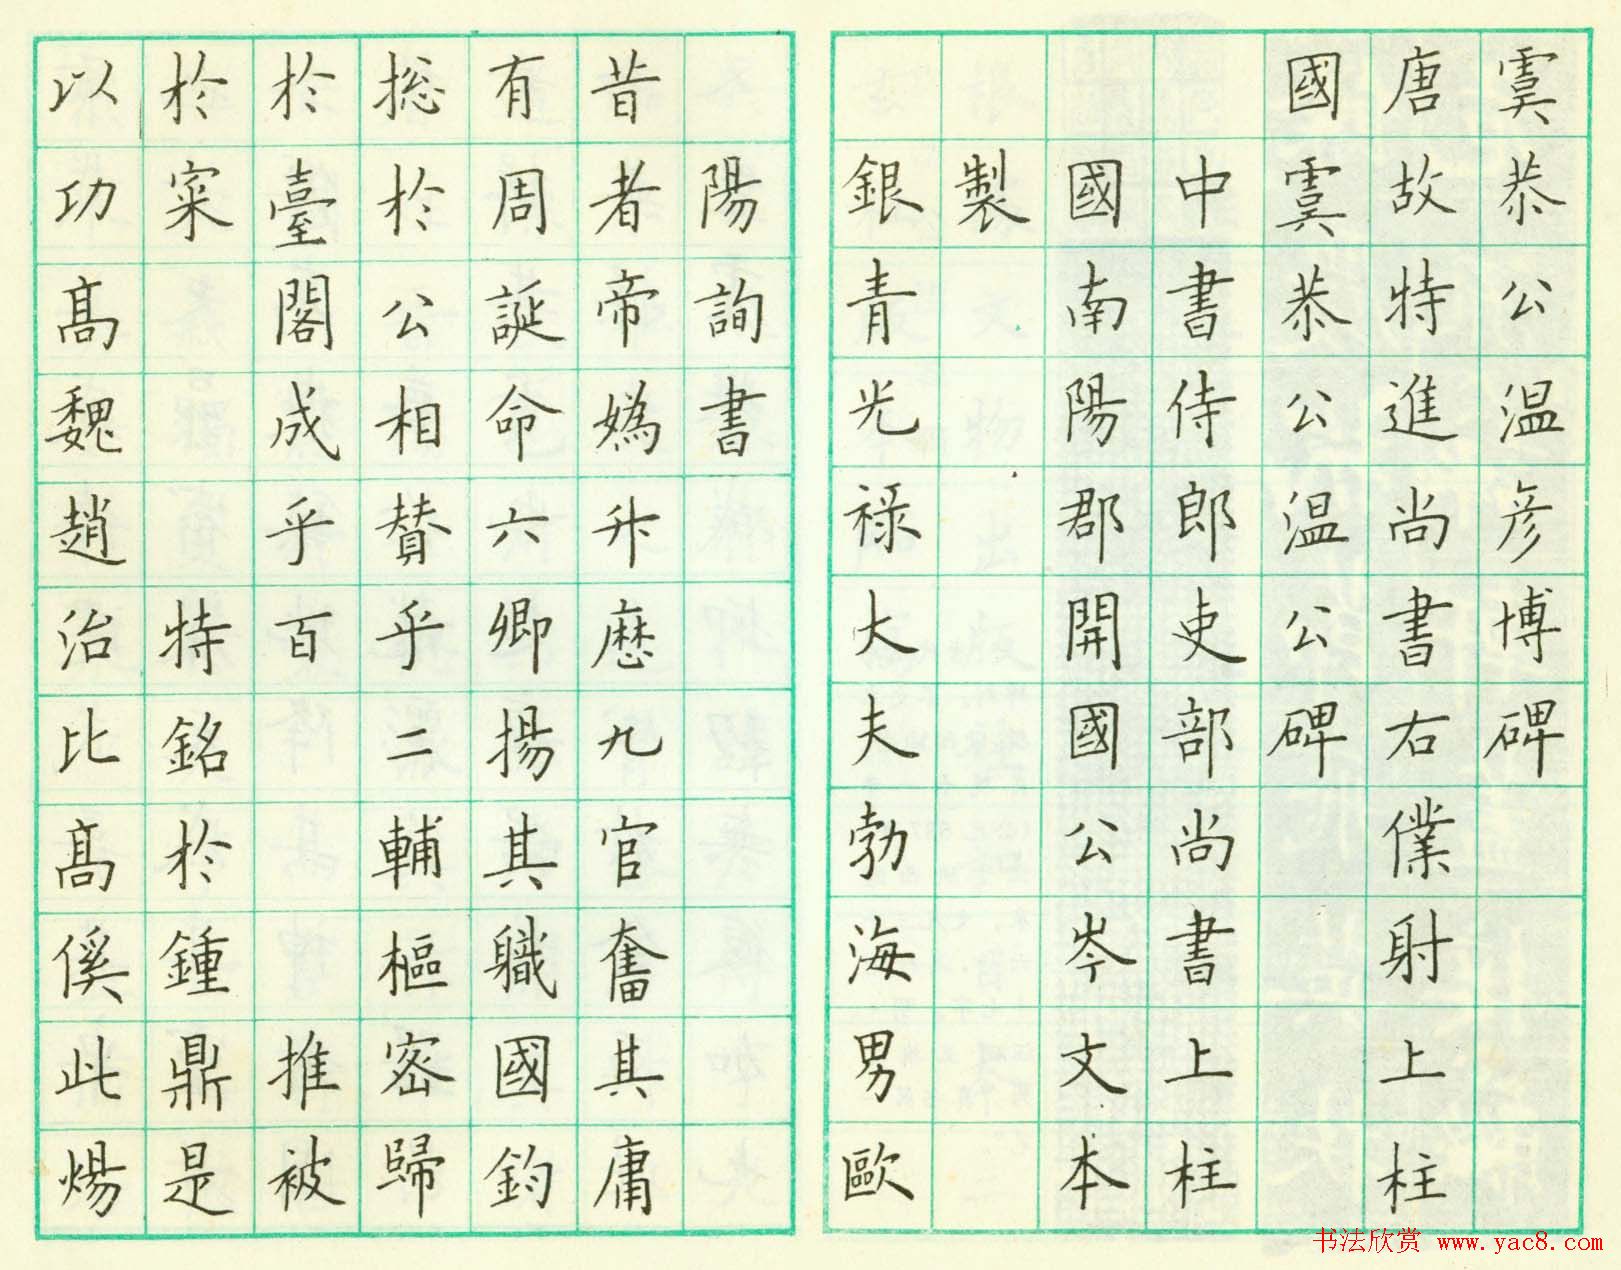 虞恭公温彦博碑
唐故特進尚書右僕射上柱
國虞恭公温公碑
中書侍郎吏部尚書上柱
國南陽郡開國公岑文本
製
銀青光禄大夫勃海男歐
陽詢書
昔者帝媯升歷九官奮其庸
有周誕命六卿揚其職國鈞
揔於公相賛乎二輔樞密歸
於臺閣成乎百推被
於寀特銘於鍾鼎是
以功高魏趙治比高傒此煬
书法欣赏 www.yac8.com